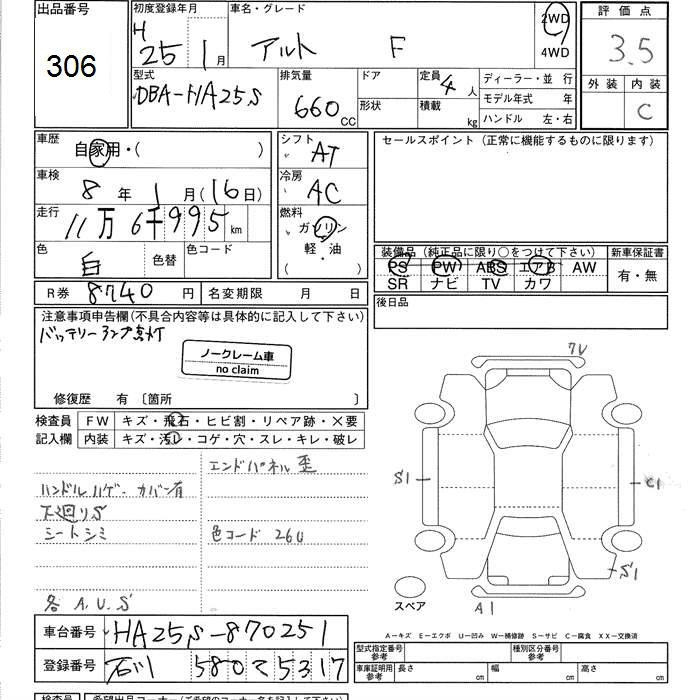 出品番号
306
初度登録年月
H 25 1月
車名・グレード
アルト F
2WD
4WD
評価点
3.5
外装 内装
C
型式
DBA-HA25S
排気量
660 CC
ドア
形状
定員 4 人
積載 kg
ディーラー・並 行
モデル年式 年
ハンドル 左・右
車歴
自家用・( )
車検
8 年 1 月(16日)
走行
11万6千995 km
色
白 色替
色コード
シフト
AT
冷房
AC
燃料
ガソリン
軽・油
( )
セールスポイント (正常に機能するものに限ります)
装備品 (純正品に限り○をつけて下さい)
PS PW ABS エアB AW
SR ナビ TV カワ
新車保証書
有・無
R券 8740 円
名変期限 月 日
後日品
注意事項申告欄(不具合内容等は具体的に記入して下さい)
バッテリーランプ点灯
ノークレーム車
no claim
修復歴 有 〔箇所 〕
検査員 FW キズ・飛石・ヒビ割・リペア跡・×要
記入欄 内装 キズ・汚レ・コゲ・穴・スレ・キレ・破レ
エンドパネル歪
ハンドルハゲ・カバン有
下廻りS
シートシミ
色コード 26U
各 A.U.S
7V
S1
C1
S1
A1
スペア
A-キズ E-エクボ U-凹み W-補修跡 S-サビ C-腐食 XX-交換済
車台番号 HA25S-870251
登録番号 石川 580 て 5317
型式指定番号
参考
種別区分番号
参考
車庫証明用
参考
長さ cm 幅 cm 高さ cm